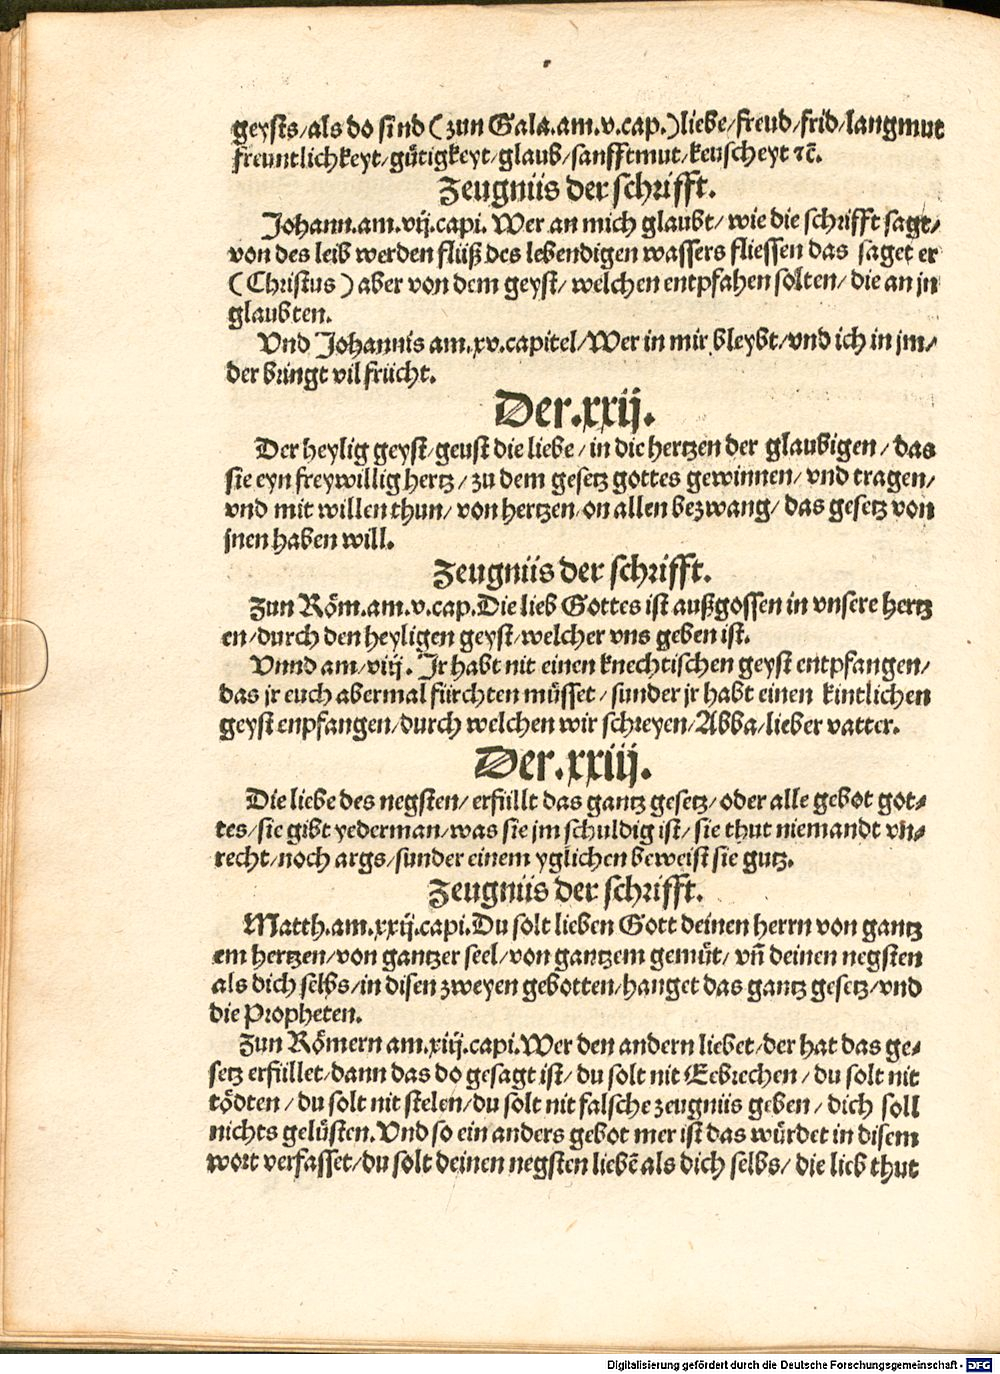 geysts/als do sind (zun Gala.am.v.cap.)liebe/freud/frid/langmut
freuntlichkeyt/gütigkeyt/glaub/sanfftmut/keuscheyt ꝛc̃.
Zeugniis der schrifft.
Johann.am.vij.capi. Wer an mich glaubt/ wie die schrifft sagt/
von des leib werden flüß des lebendigen wassers fliessen das saget er
(Christus) aber von dem geyst/ welchen entpfahen solten/ die an jn
glaubten.
Vnd Johannis am.xv.capitel/Wer in mir bleybt/vnd ich in jm/
der bringt vil frücht.
Der.xxij.
Der heylig geyst/geust die liebe/ in die hertzen der glaubigen/ das
sie eyn freywillig hertz/ zu dem gesetz gottes gewinnen/ vnd tragen/
vnd mit willen thun/ von hertzen/on allen bezwang/ das gesetz von
jnen haben will.
Zeugniis der schrifft.
Zun Röm.am.v.cap.Die lieb Gottes ist außgossen in vnsere hertz
en/durch den heyligen geyst/welcher vns geben ist.
Vnnd am/viij. Jr habt nit einen knechtischen geyst entpfangen/
das jr euch abermal fürchten müsset/ sunder jr habt einen kintlichen
geyst enpfangen/durch welchen wir schreyen/Abba/lieber vatter.
Der.xxiij.
Die liebe des negsten/ erfüllt das gantz gesetz/ oder alle gebot got-
tes/ sie gibt yederman/was sie jm schuldig ist/ sie thut niemandt vn-
recht/noch args/sunder einem yglichen beweist sie gutz.
Zeugniis der schrifft.
Matth.am.xxij.capi.Du solt lieben Gott deinen herrn von gantz
em hertzen/von gantzer seel/von gantzem gemüt/ vñ deinen negsten
als dich selbs/in disen zweyen gebotten/hanget das gantz gesetz/vnd
die Propheten.
Zun Römern am.xiij.capi.Wer den andern liebet/der hat das ge-
setz erfüllet/dann das do gesagt ist/ du solt nit Eebrechen/ du solt nit
tödten/ du solt nit stelen/du solt nit falsche zeugniis geben/ dich soll
nichts gelüsten.Vnd so ein anders gebot mer ist das würdet in disem
wort verfasset/du solt deinen negsten liebẽ als dich selbs/ die lieb thut
Digitalisierung gefördert durch die Deutsche Forschungsgemeinschaft - DFG